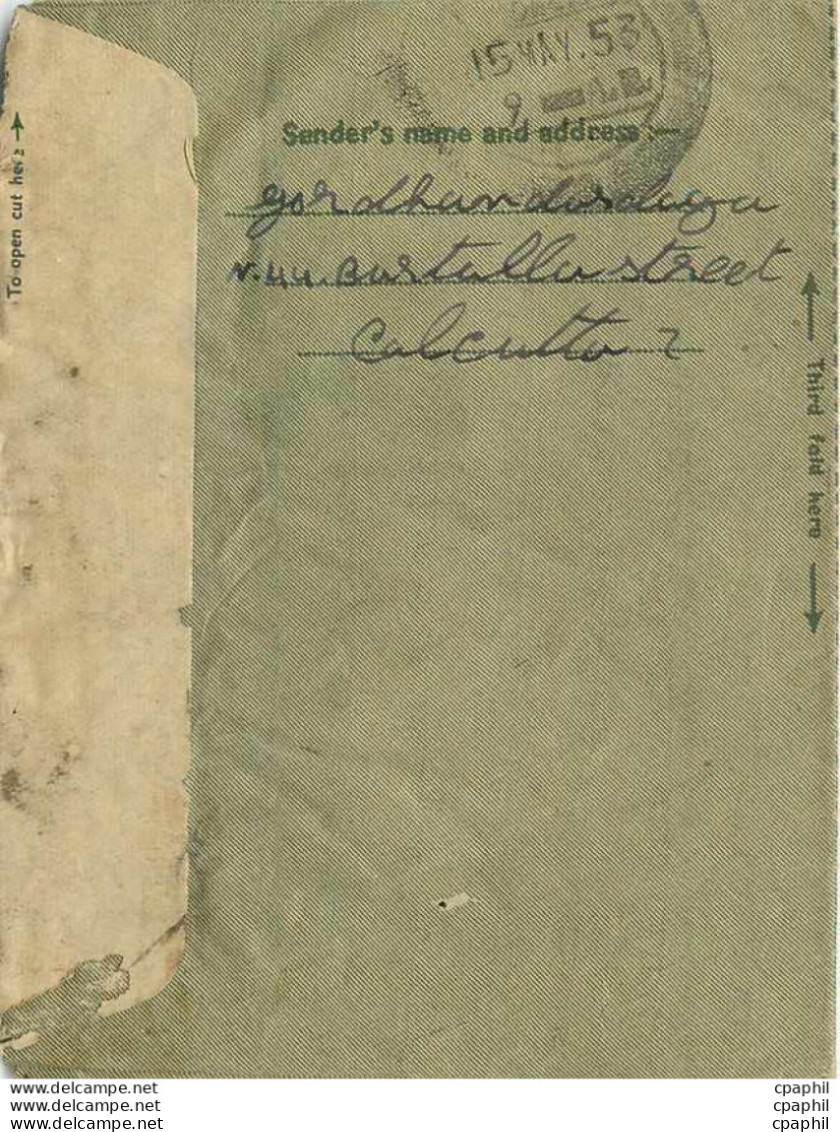 15 MAY. 53
9
Sender's name and address :—
gordhandasdaga
N. 44. Burtalla street
Calcutta 7
To open cut here
Third fold here
www.delcampe.net
www.delcampe.net
www.delcampe.net
cpaphil
cpaphil
cpaphil